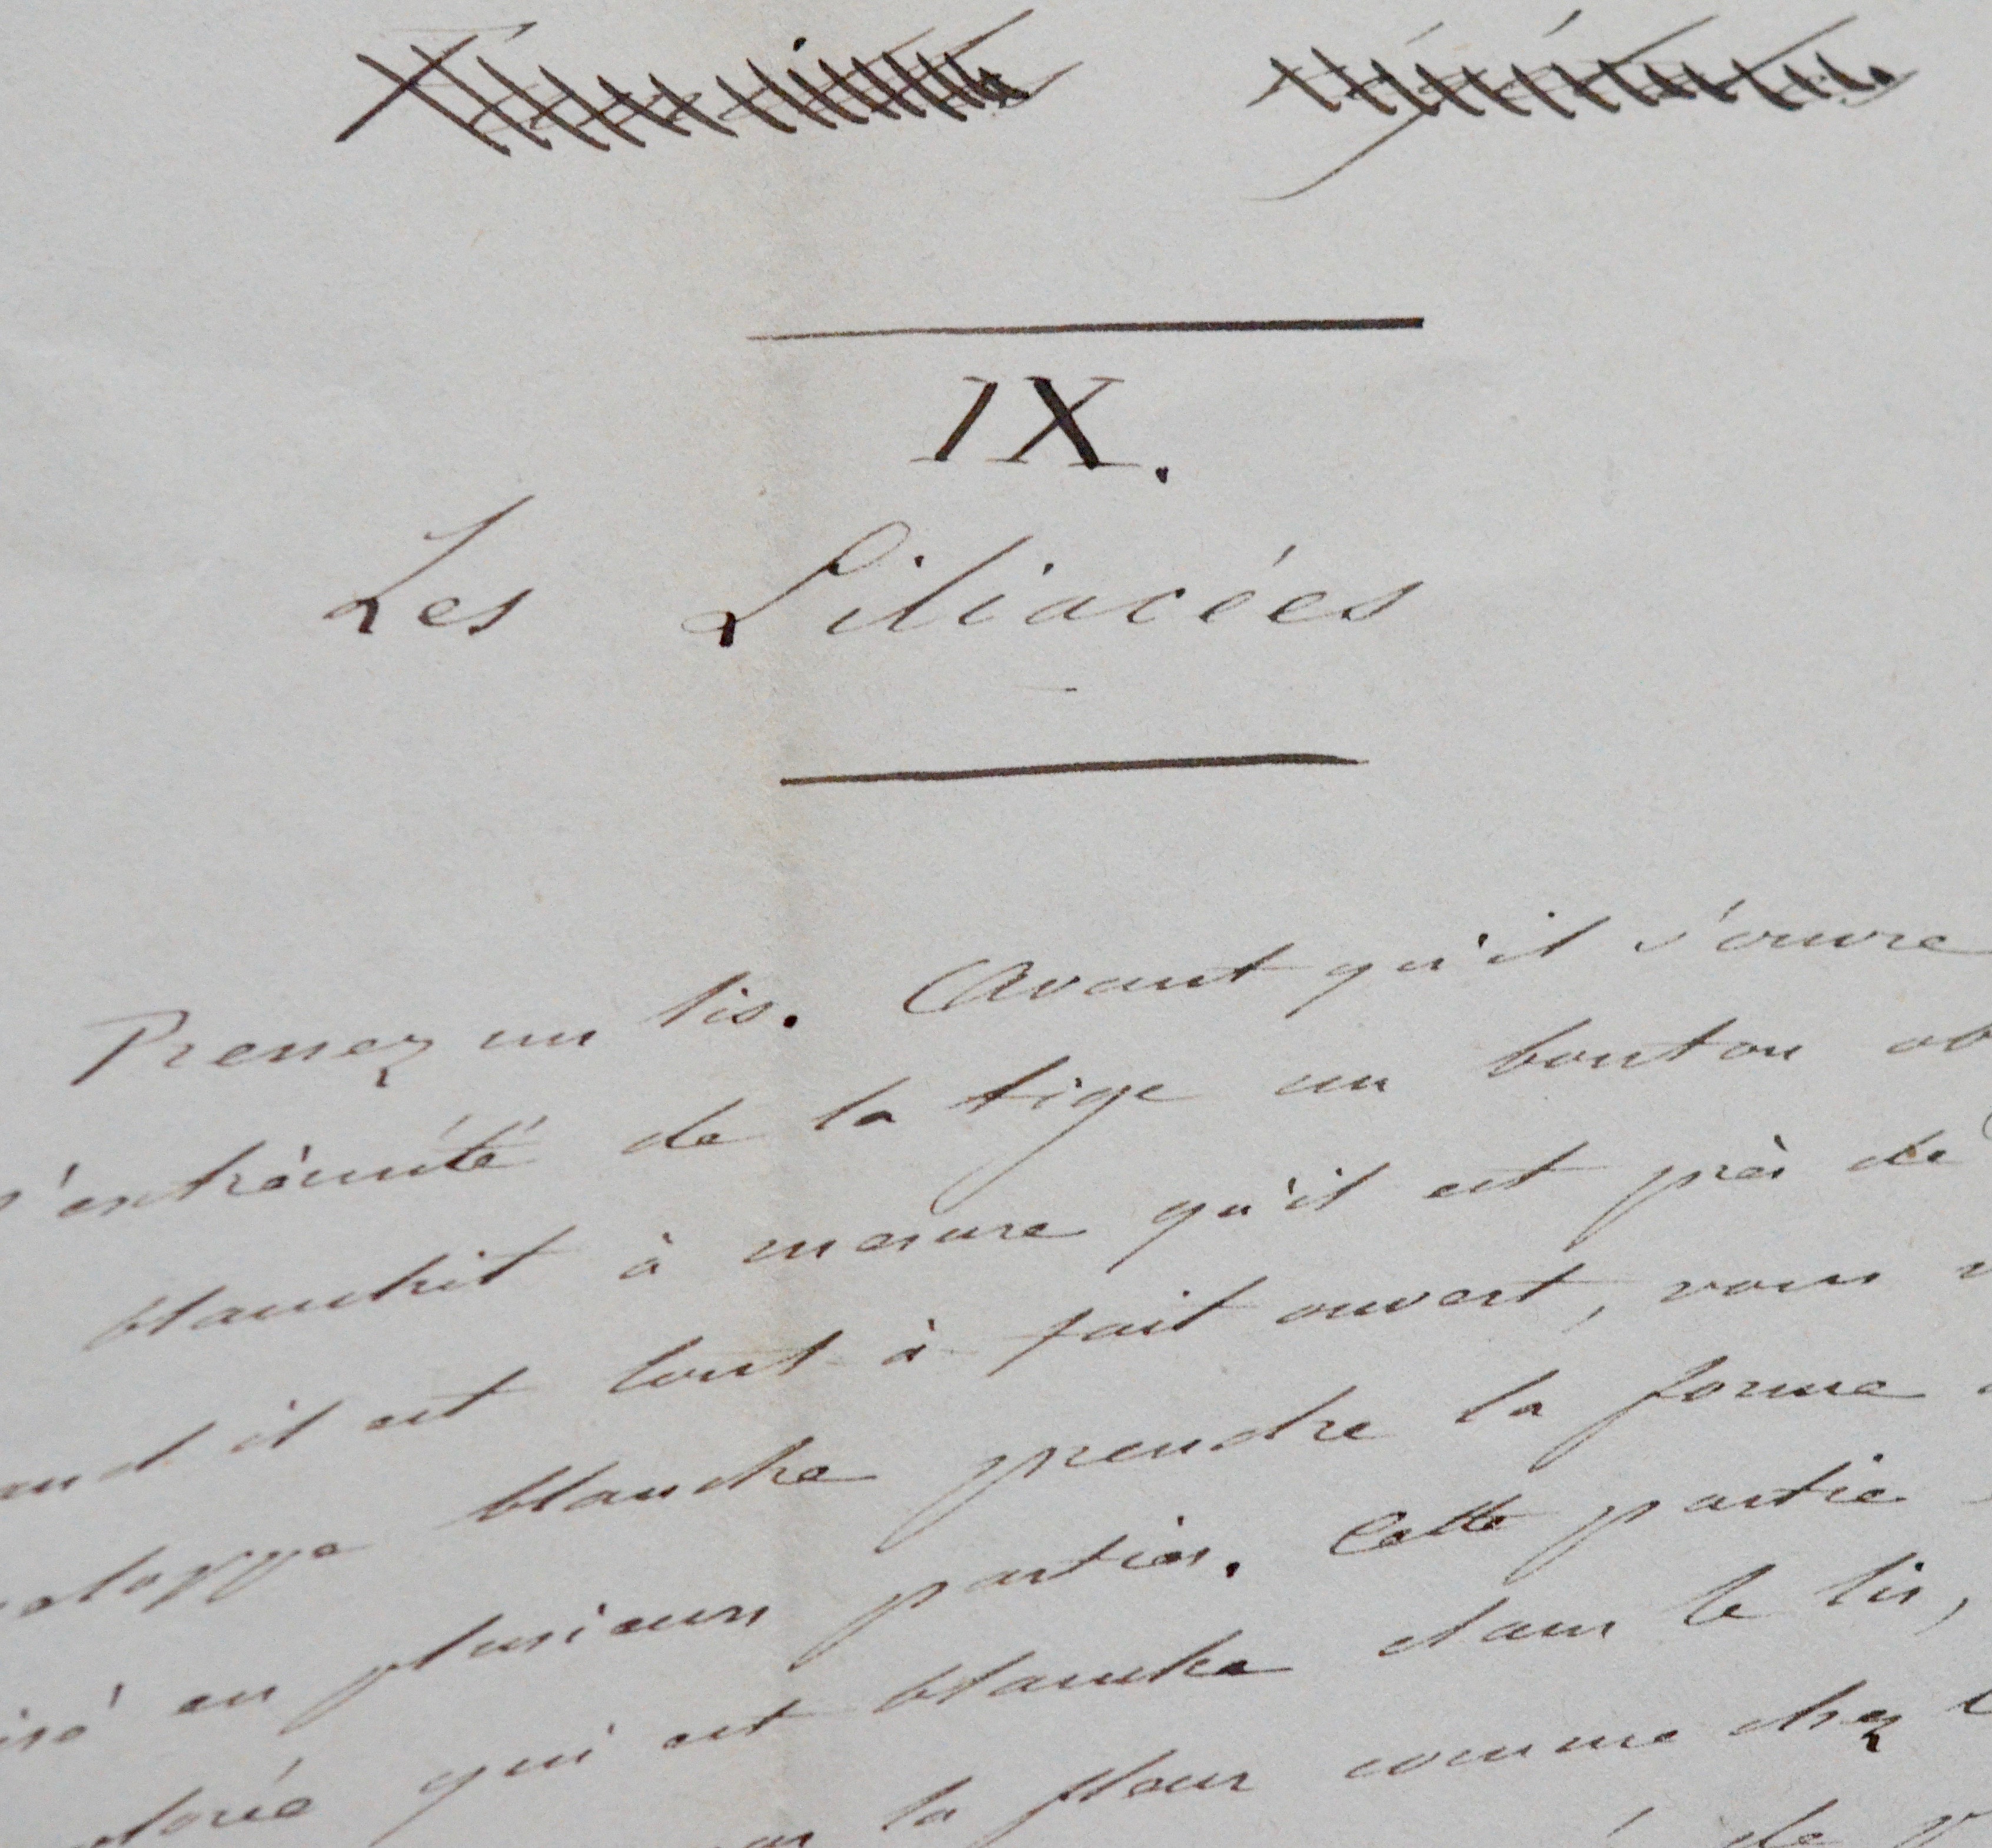 IX.
Les Liliacées
Prenez un lis. Avant qu'il s'ouvre
l'extrémité de la tige un bouton ob
blanchit à mesure qu'il est près de
and il est tout à fait ouvert, vous
eloppe blanche prendre la forme
isé en plusieurs parties. Cette partie
olorée qui est blanche dans le lis,
la fleur comme chez
de